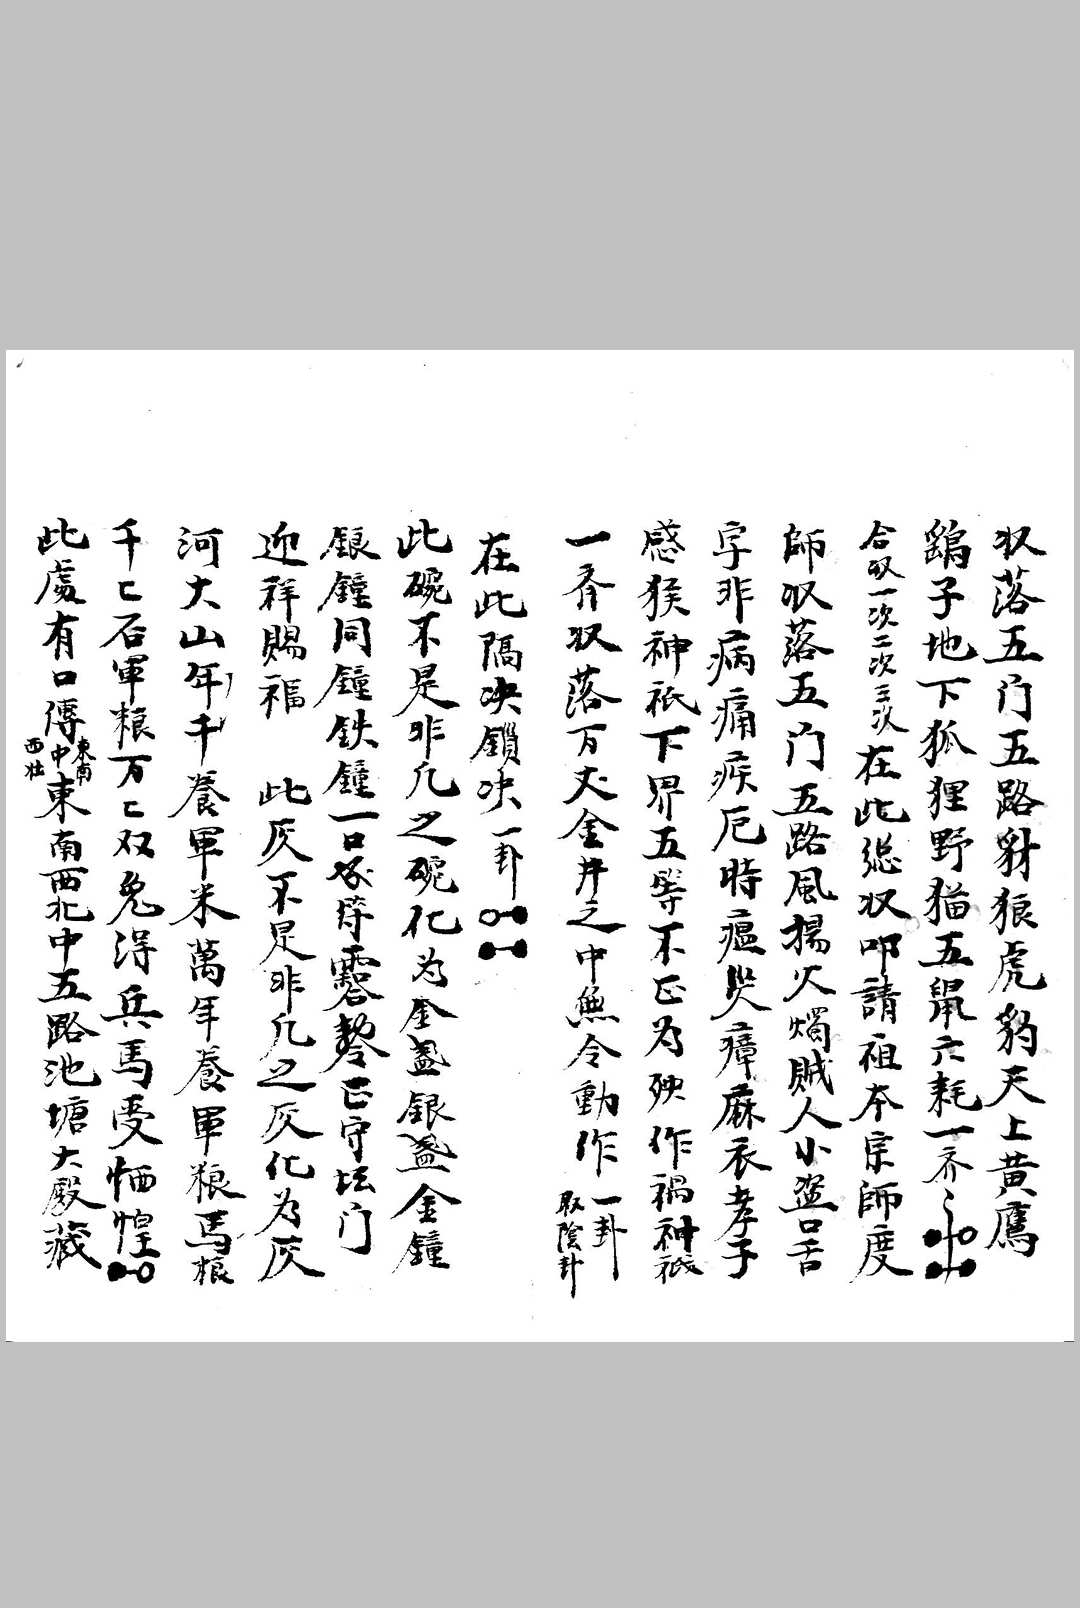 収落五门五路豺狼虎豹天上黄鷹
鷂子地下狐狸野猫五鼠六耗一齐
合収一次二次三次在此总収叩請祖本宗師度
師収落五门五路風揚火燭賊人小盗口舌
字非病痛疾厄時瘟哭瘴麻衣孝子
惑猴神祇下界五等不正为殃作禍神祇
一齐収落万丈金井之中無令動作一卦取陰卦
在此隔决鎖决一卦
此碗不是非凡之碗化为金盏銀盏金鐘
銀鐘同鐘鉄鐘一口 正守坛门
迎祥賜福 此灰不是非凡之灰化为灰
河大山年千養軍米萬年養軍粮馬粮
千〻石軍粮万〻双免得兵馬受恓惶
此處有口傳東南中西北東南西北中五路池塘大殿藏